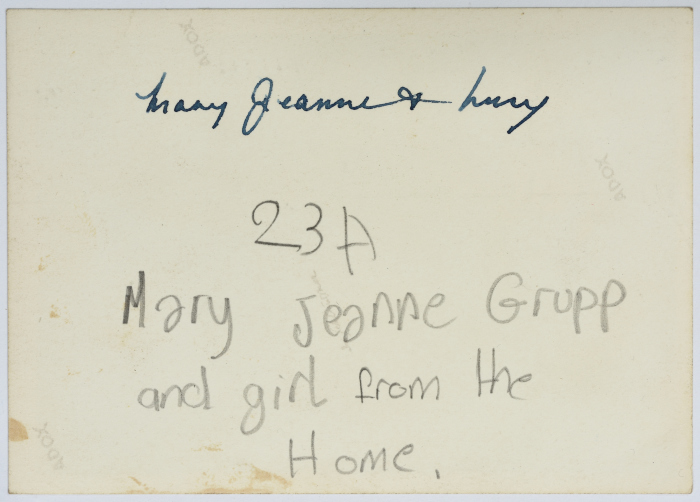 ADOX
Mary Jeanne & Lucy
ADOX
23A
Mary Jeanne Grupp
and girl from the
Home.
ADOX